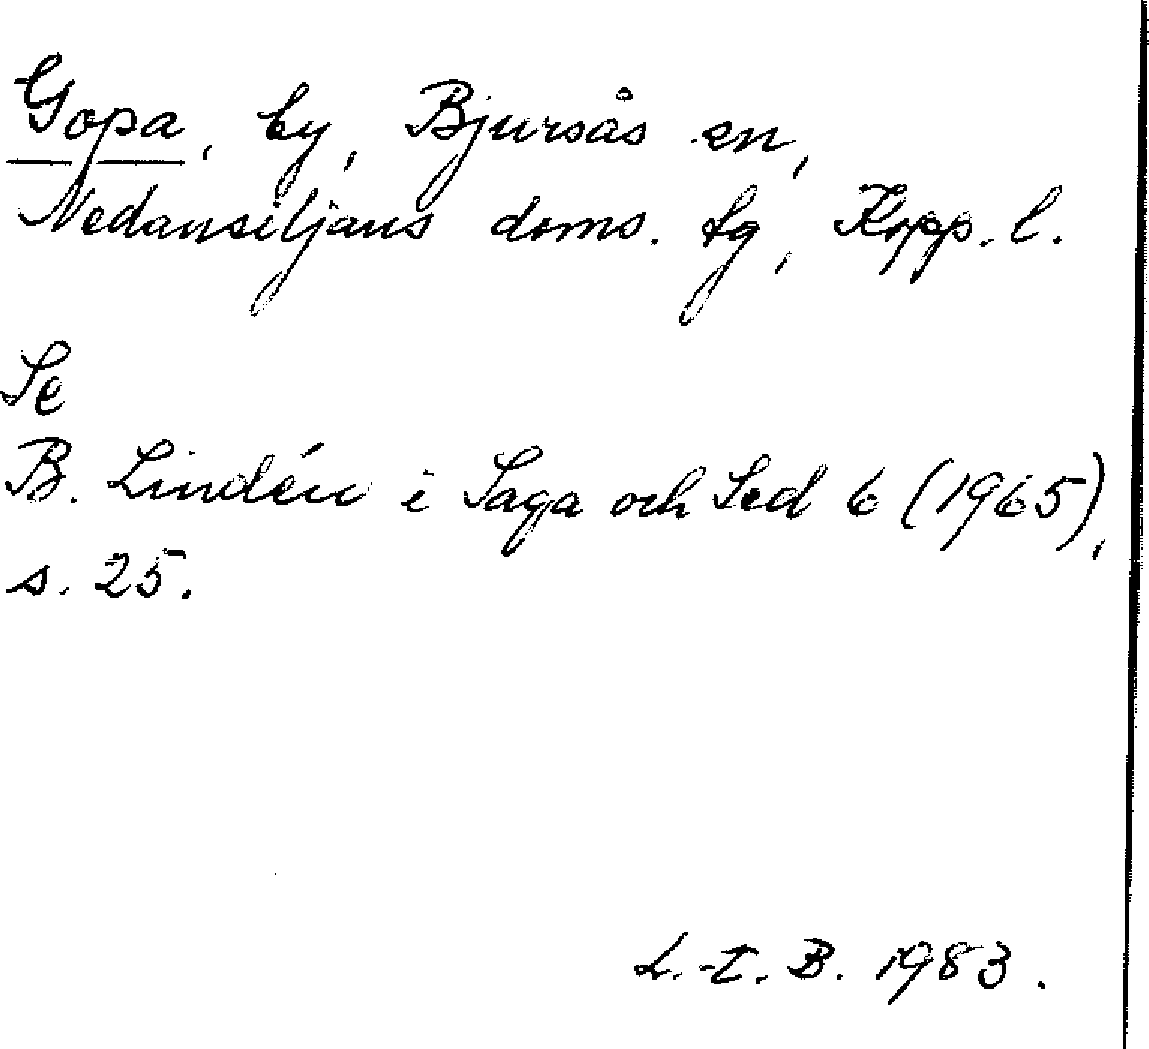 Gopa, by, Bjursås sn,
Nedansiljans doms. tg, Kopp. l.
Se
B. Lindén i Saga och Sed 6 (1965),
s. 25.
L.-E. B. 1983.